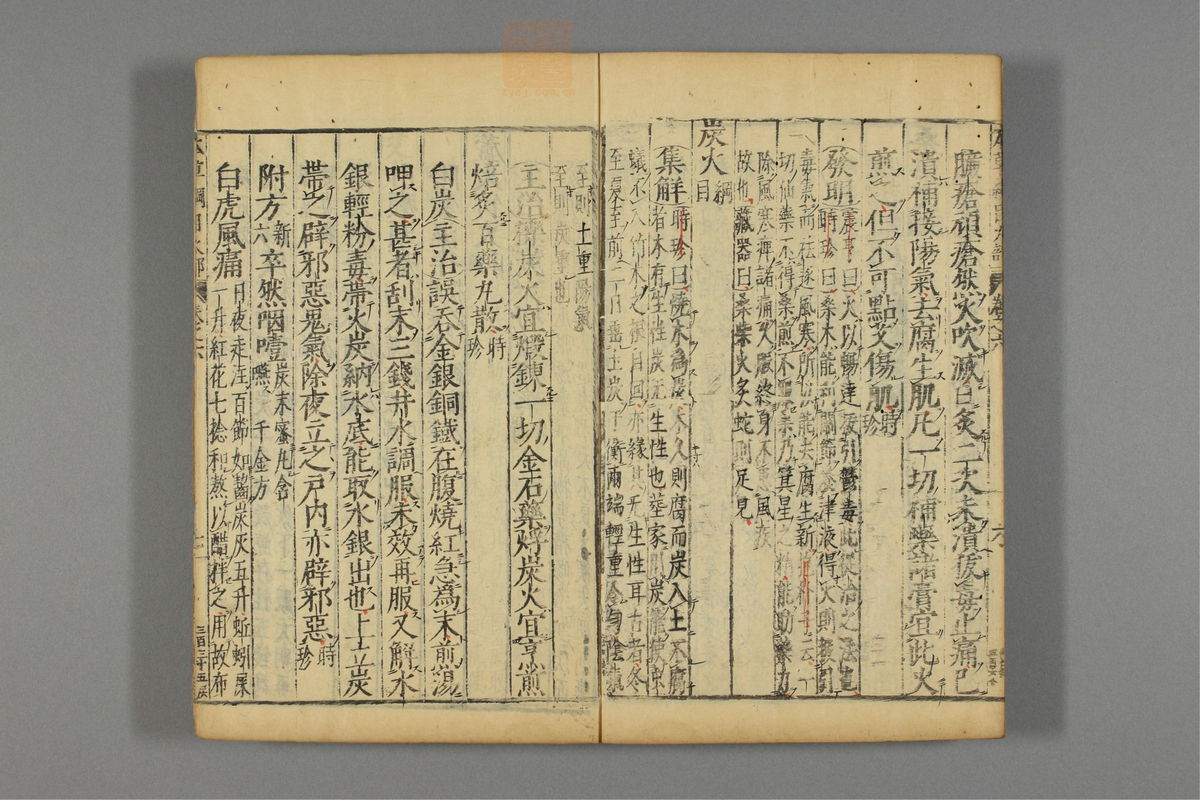 臁瘡頑瘡然火吹滅日灸二次未潰拔毒止痛已
潰補接陽氣去腐生肌凡一切補藥諸膏宜此火
煎之但不可點艾傷肌時珍
發明震亨曰火以暢達拔引鬱毒此從治之法也
時珍曰桑木能利關節養津液得火則拔引
毒氣而祛逐風寒所以能去腐生新
切仙藥不得桑煎不服桑乃箕星之精能助藥力
除風寒痺諸痛久服終身不患風疾
故也藏器曰桑柴火炙蛇則足見
炭火綱目
集解時珍曰燒木為炭木久則腐而炭入土不腐
者木有生性炭無生性也葬家用炭能使蟲
蟻不入竹木之根自回亦緣其无生性耳古者冬
至夏至前二日垂土炭于衡兩端輕重令勻陰氣
至則土重陽氣
至則炭重也
主治櫟炭火宜煅鍊一切金石藥烰炭火宜烹煎
焙炙百藥丸散時珍
白炭主治誤吞金銀銅鐵在腹燒紅急為末煎湯
呷之甚者刮末三錢井水調服未效再服又解水
銀輕粉毒帶火炭納水底能取水銀出也上立炭
帶之辟邪惡鬼氣除夜立之戶內亦辟邪惡時珍
附方新六卒然咽噎炭末蜜丸含嚥千金方
白虎風痛日夜走注百節如齧炭灰五升蚯蚓屎
一升紅花七捻和熬以醋拌之用故布